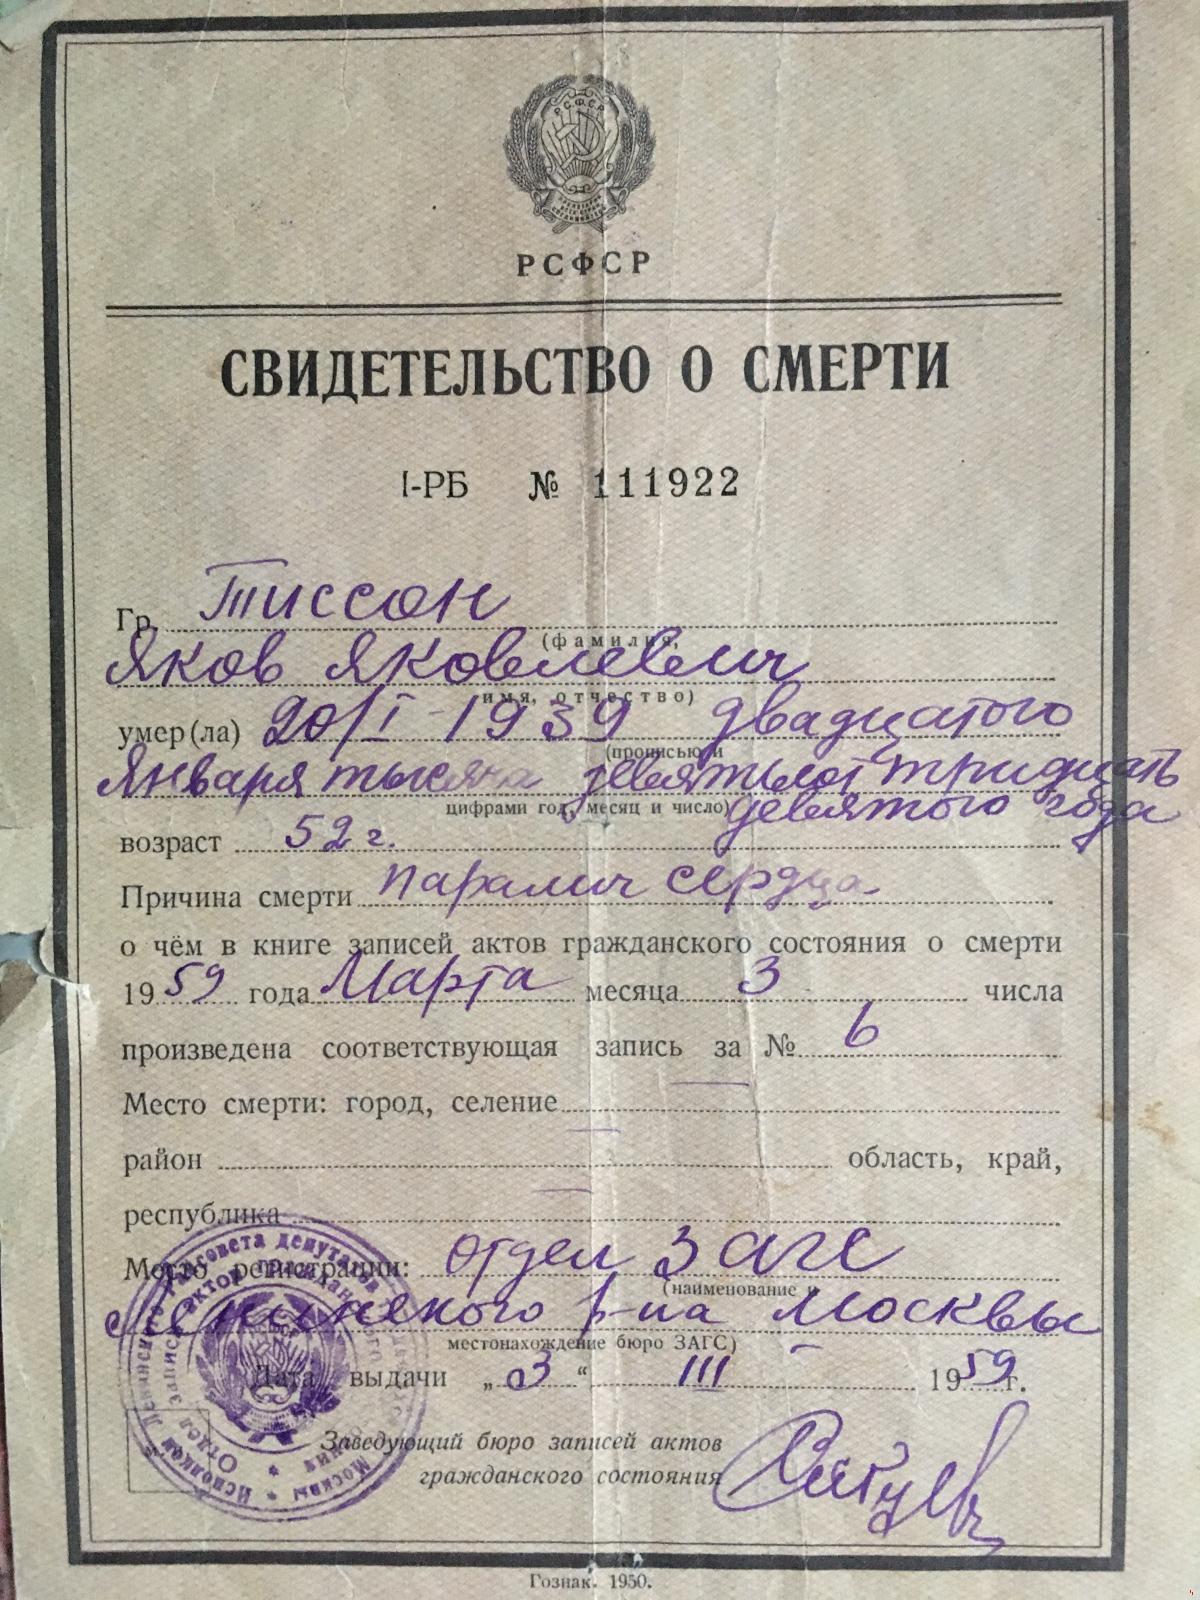 РСФСР
РСФСР
СВИДЕТЕЛЬСТВО О СМЕРТИ
I-РБ № 111922
Гр. Тиссон
(фамилия,
Яков Яковлевич
имя, отчество)
умер(ла) 20/I-1939 двадцатого
(прописью и
Января тысяча девятьсот тридцать
цифрами год, месяц и число) девятого года
возраст 52 г.
Причина смерти паралич сердца
о чём в книге записей актов гражданского состояния о смерти
1959 года Марта месяца 3 числа
произведена соответствующая запись за № 6
Место смерти: город, селение —
район — область, край,
республика —
Место регистрации: отдел ЗАГС
(наименование и
Ленинского р-на Москвы
местонахождение бюро ЗАГС)
Дата выдачи „3“ III 1959 г.
Заведующий бюро записей актов
гражданского состояния
Исполком Ленинского райсовета депутатов Москвы
Отдел записи актов гражданского состояния
РСФСР
Гознак. 1950.